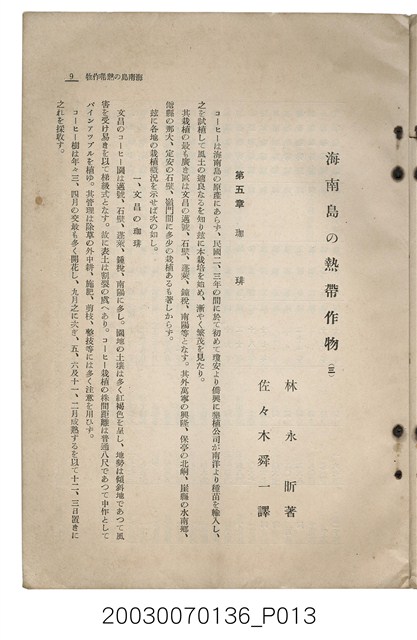 海南島の熱帶作物 (三)
林永昕著
佐々木舜一譯
第五章 珈琲
コーヒーは海南島の原產にあらす、民國二、三年の間に於て初めて瓊安より僑興に墾植公司が南洋より種苗を輸入し、
之を試植して風土の適良なるを知り玆に本栽培を始め、漸やく繁茂を見たり。
其栽植の最も廣き區は文昌の邁號、石壁、蓬萊、鐘梘、南陽等となす。其外萬寧の興隆、保亭の北峒、崖縣の水南鄉、
儋縣の那大、定安の石壁、嶺門間に多少の栽植あるも著しからす。
玆に各地の栽植概況を示せば次の如し。
一、文昌の珈琲
文昌のコーヒー園は邁號、石壁、蓬萊、鐘梘、南陽に多し。園地の土壤は多く紅褐色を呈し、地勢は傾斜地であつて風
害を受け易きを以て梯級式となす。故に表土は割裂の虞へあり。コーヒー栽植の株間距離は普通八尺であつて中作として
パインアツプルを植ゆ。其管理は除草の外中耕、施肥、剪枝、整枝等には多く注意を用ひす。
コーヒー樹は年々三、四月の交最も多く開花し、九月之に次ぎ、五、六及十一、二月成熟するを以て十二、三日置きに
之れを採收す。
海南島の熱帶作物
9
20030070136_P013